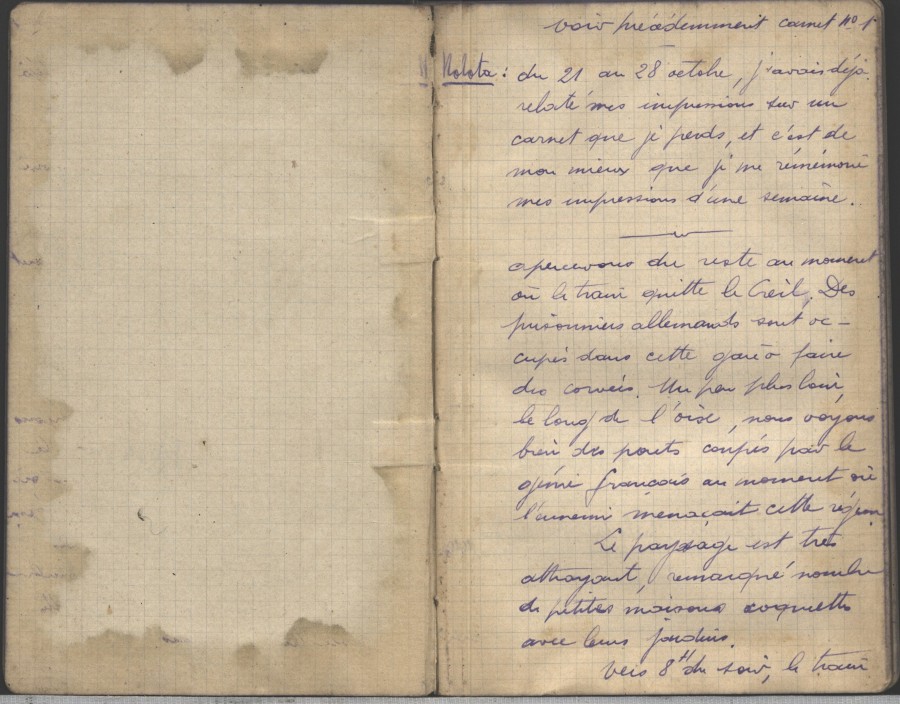 voir précédemment carnet no 1
N Notata : du 21 au 28 octobre, j'avais déjà
relaté mes impressions sur un
carnet que je perds, et c'est de
mon mieux que je me rémémorie
mes impressions d'une semaine.
apercevons du reste au moment
où le train quitte le Creil. Des
prisonniers allemands sont oc-
cupés dans cette gare à faire
des corvées. Un peu plus loin,
le long de l'oise, nous voyons
bien des ponts coupés par le
génie français au moment où
l'ennemi menaçait cette région
Le paysage est très
attrayant, remarqué nombre
de petites maisons coquettes
avec leurs jardins.
Vers 8H du soir, le train